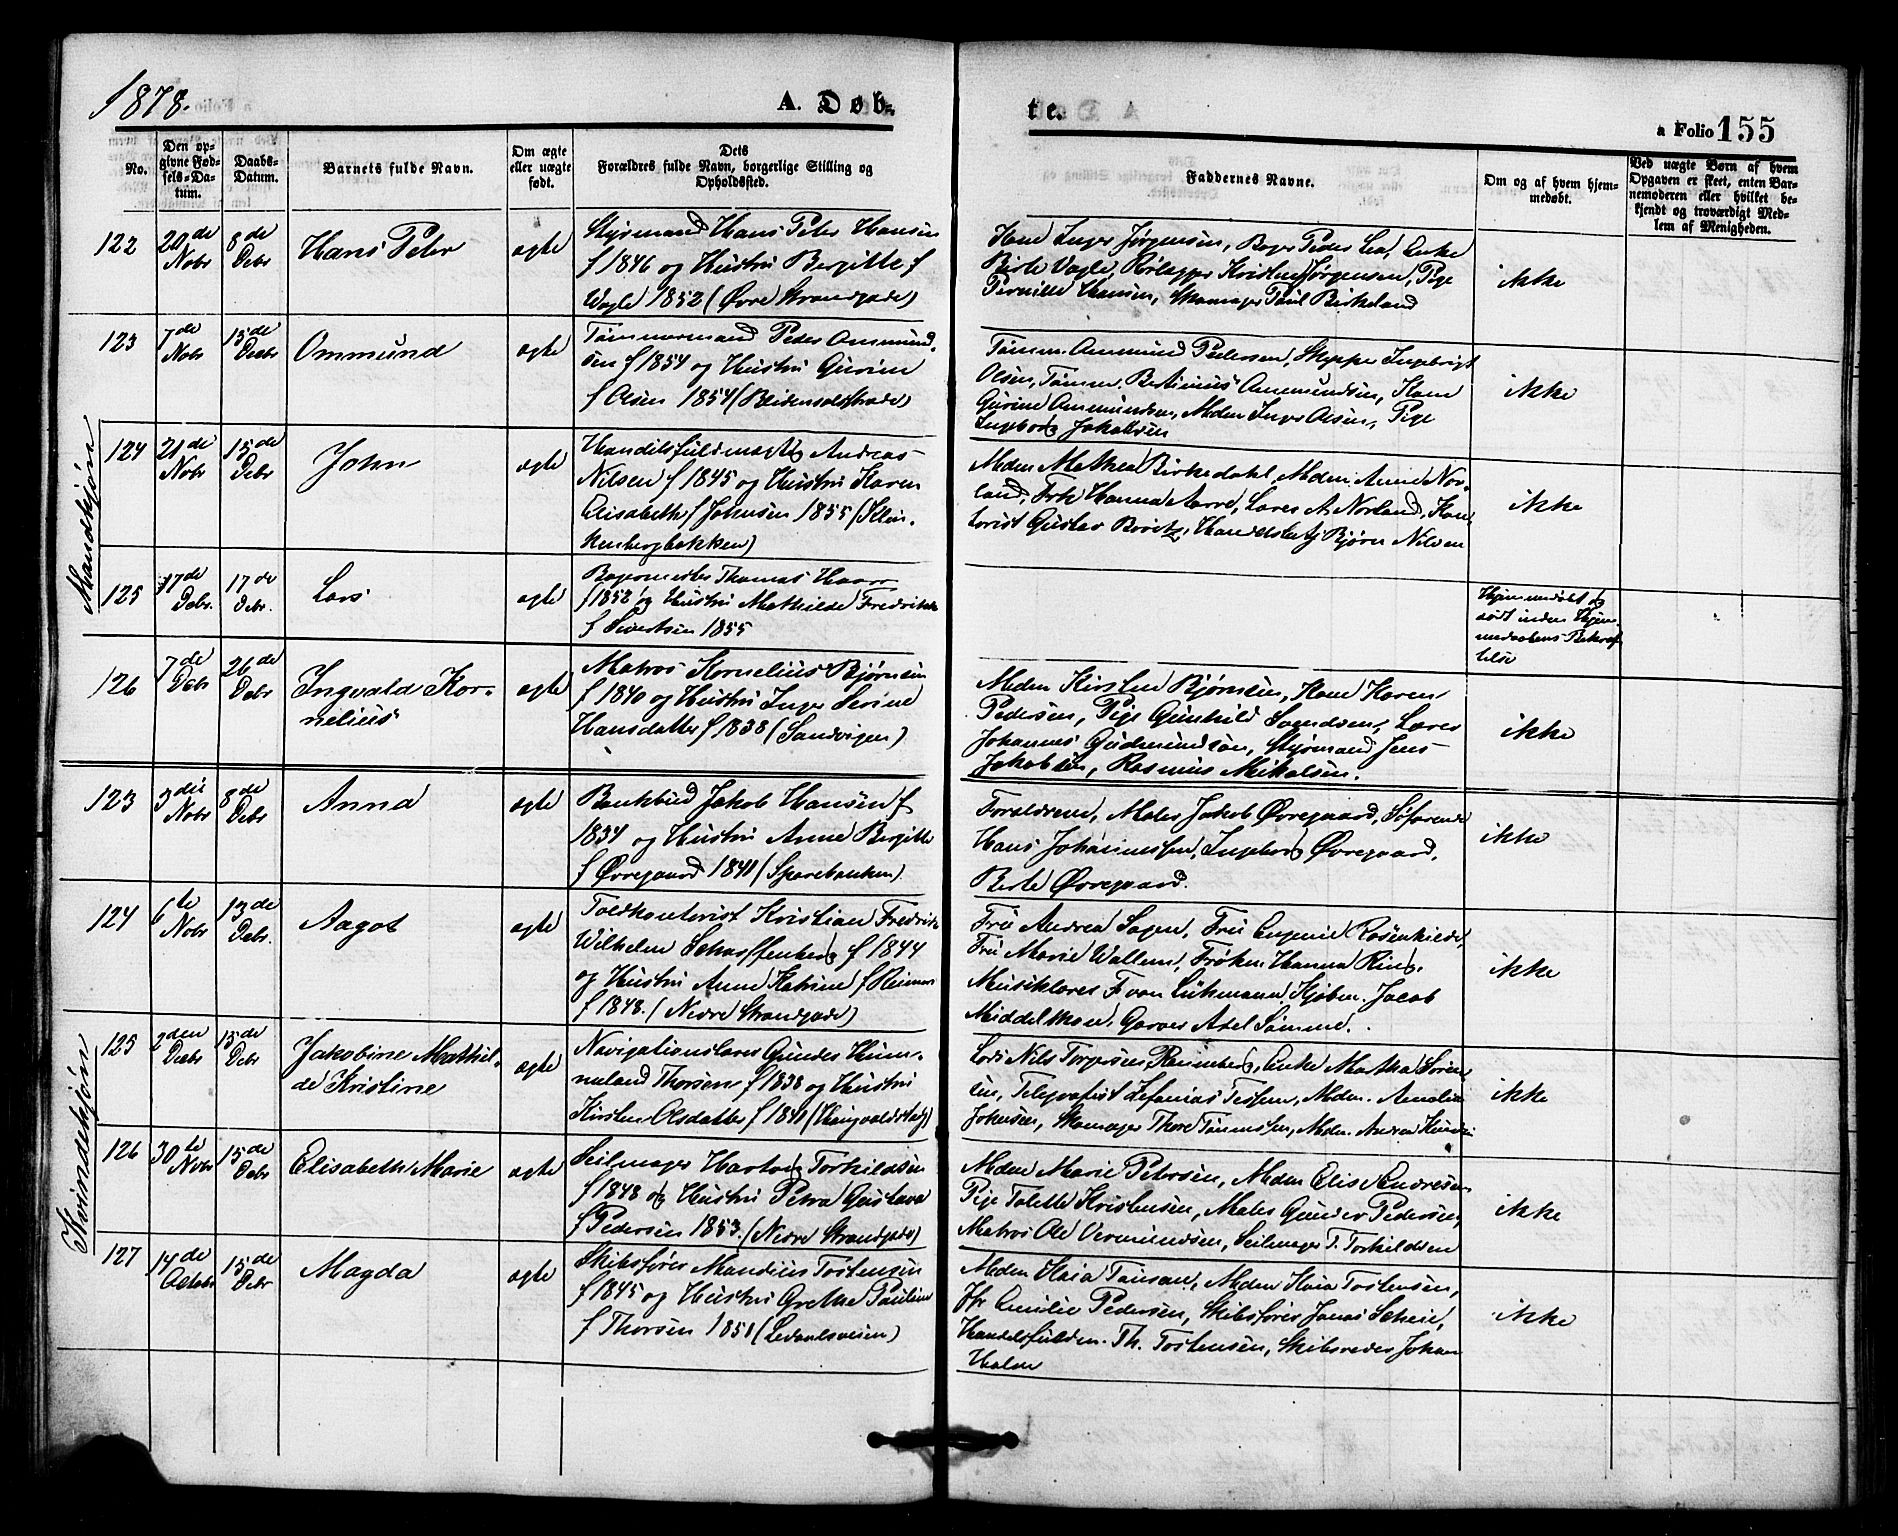 1878.
A. Døb-
te.
a Folio 155
No.
Den op-
givne Fød-
sels-Da-
tum.
Daabs-
Datum.
Barnets fulde Navn.
Om ægte
eller uægte
født.
Dets
Forældres fulde Navn, borgerlige Stilling og
Opholdssted.
Faddernes Navne.
Om og af hvem hjem-
medøbt.
Ved uægte Børn af hvem
Opgaven er skeet, enten Bar-
nemoderen eller hvilket be-
kjendt og troværdigt Med-
lem af Menigheden.
Mandkjøn
122
20de
Nobr
8de
Debr
Hans Peter
ægte
Styrmand Hans Peter Hansen
f 1846 og Hustru Bergitte f
Vagle 1852 (Øvre Strandgade)
Kone Inger Jørgensen, Bager Peder Lea, Enke
Birte Vagle, Kristen Jørgensen, Pige
Pernille Hansen, Skomager Paul Birkeland
ikke
123
7de
Nobr
15de
Decbr
Ommund
ægte
Tømmermand Peder Ommund-
sen f 1854 og Hustru Gurine
f Olsen 1854
Tømm. Ommund Pedersen, Skipper Ingebrigt
Olsen, Tømm. Bertinius Ommundsen, Kone
Gurine Ommundsen, Mdm Inger Olsen, Pige
Ingeborg Jakobsen
ikke
124
21de
Nobr
15de
Debr
John
ægte
Handelsfuldmægtig Andreas
Nilsen f 1845 og Hustru Karen
Elisabeth f Johnsen 1855 (Klin-
kenbergbakken)
Mdm Mathea Birkedahl, Mdm Anne Nor-
land, Frk Hanna Aarre, Lærer A. Norland, Kon-
torist Gustav Brøitz, Handelsbetj Bjørn Nilsen
ikke
125
17de
Debr.
17de
Debr.
Lars
ægte
Bagermester Thomas Haar
f 1852 og Hustru Mathilde Fredrikke
f Sivertsen 1855
Hjemmedøbt og
død inden Hjem-
medaabens Bekræf-
telse
126
7de
Debr
26de
Debr
Ingvald Kor-
nelius
ægte
Matros Kornelius Bjørnsen
f 1840 og Hustru Inger Serine
Hansdatter f 1838 (Sandvigen)
Mdm Kirsten Bjørnsen, Kone Karen
Pedersen, Pige Gunhild Svendsen, Lærer
Johannes Gudmundsen, Styrmand Jens
Jakobsen, Rasmus Mikalsen.
ikke
Kvindekjøn
123
3die
Nobr
8de
Debr
Anna
ægte
Bankbud Jakob Hansen f
1834 og Hustru Anne Bergitte
f Øvregaard 1841 (Sparebanken)
Forældrene, Maler Jakob Øvregaard, Søfarende
Hans Johannessen, Ingeborg Øvregaard,
Berte Øvregaard.
ikke
124
6te
Nobr
13de
Debr.
Aagot
ægte
Toldkontorist Kristian Fredrik
Wilhelm Scharffenberg f 1844
og Hustru Anne Katrine f
f 1848. (Nedre Strandgade)
Fru Andrea Sagen, Fru Eugenie Rosenkilde,
Fru Marie Wallem, Frøken Hanna Ring,
Musiklærer F von Lühmann, Kjøbm. Jacob
Middelthon, Garver Axel Sømme.
ikke
125
2den
Decbr
15de
Debr
Jakobine Mathil-
de Kristine
ægte
Navigationslærer Gunder Him-
meland Thorsen f 1838 og Hustru
Kirsten Olsdatter f 1841 (Kongvaldsteg)
Lods Nils Torgersen, Enke Martha Soren-
sen, Telegrafist Zefanias Tessem, Mdm. Amalie
Johnsen, Skomager Thore Tønnessen, Mdm. Andrea
ikke
126
30te
Nobr
15de
Debr
Elisabeth Marie
ægte
Seilmager Hartvig Torkildsen
f 1848 og Hustru Petra Gustava
f Pedersen 1853. (Nedre Strandgade)
Mdm Marie Petersen, Mdm Elise Andresen
Pige Tolette Kristensen, Maler Gunder Pedersen,
Matros Ole Vermundsen, Seilmager T. Torkildsen
ikke
127
14de
Octobr
15de
Debr
Magda
ægte
Skibsfører Mandius Tostensen
f 1845 og Hustru Grethe Pauline
f Thorsen 1851 (Ledaalsveien)
Mdm Kaia Tausan, Mdm Kaia Tostensen,
Jfr Emilie Pedersen, Skibsfører Jonas Scheie,
Handelsfuldm. Th. Tostensen, Skibsreder Johan
Holm
ikke